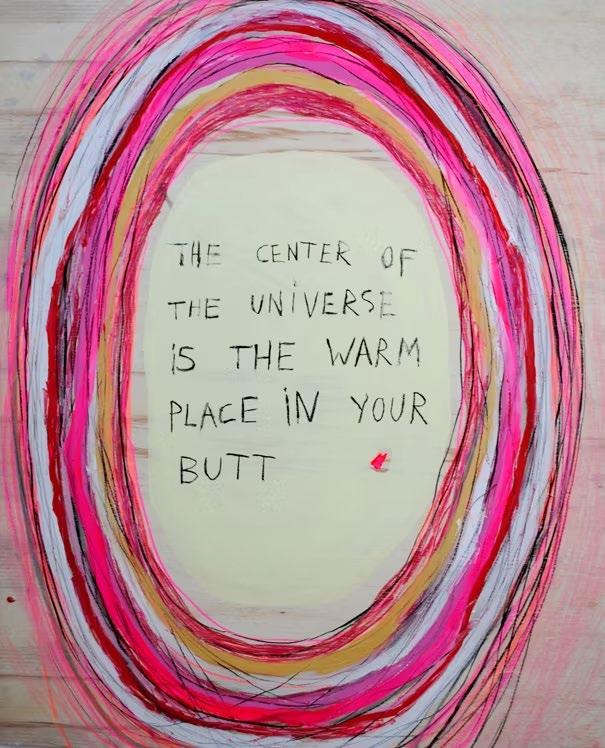 THE CENTER OF
THE UNIVERSE
IS THE WARM
PLACE IN YOUR
BUTT